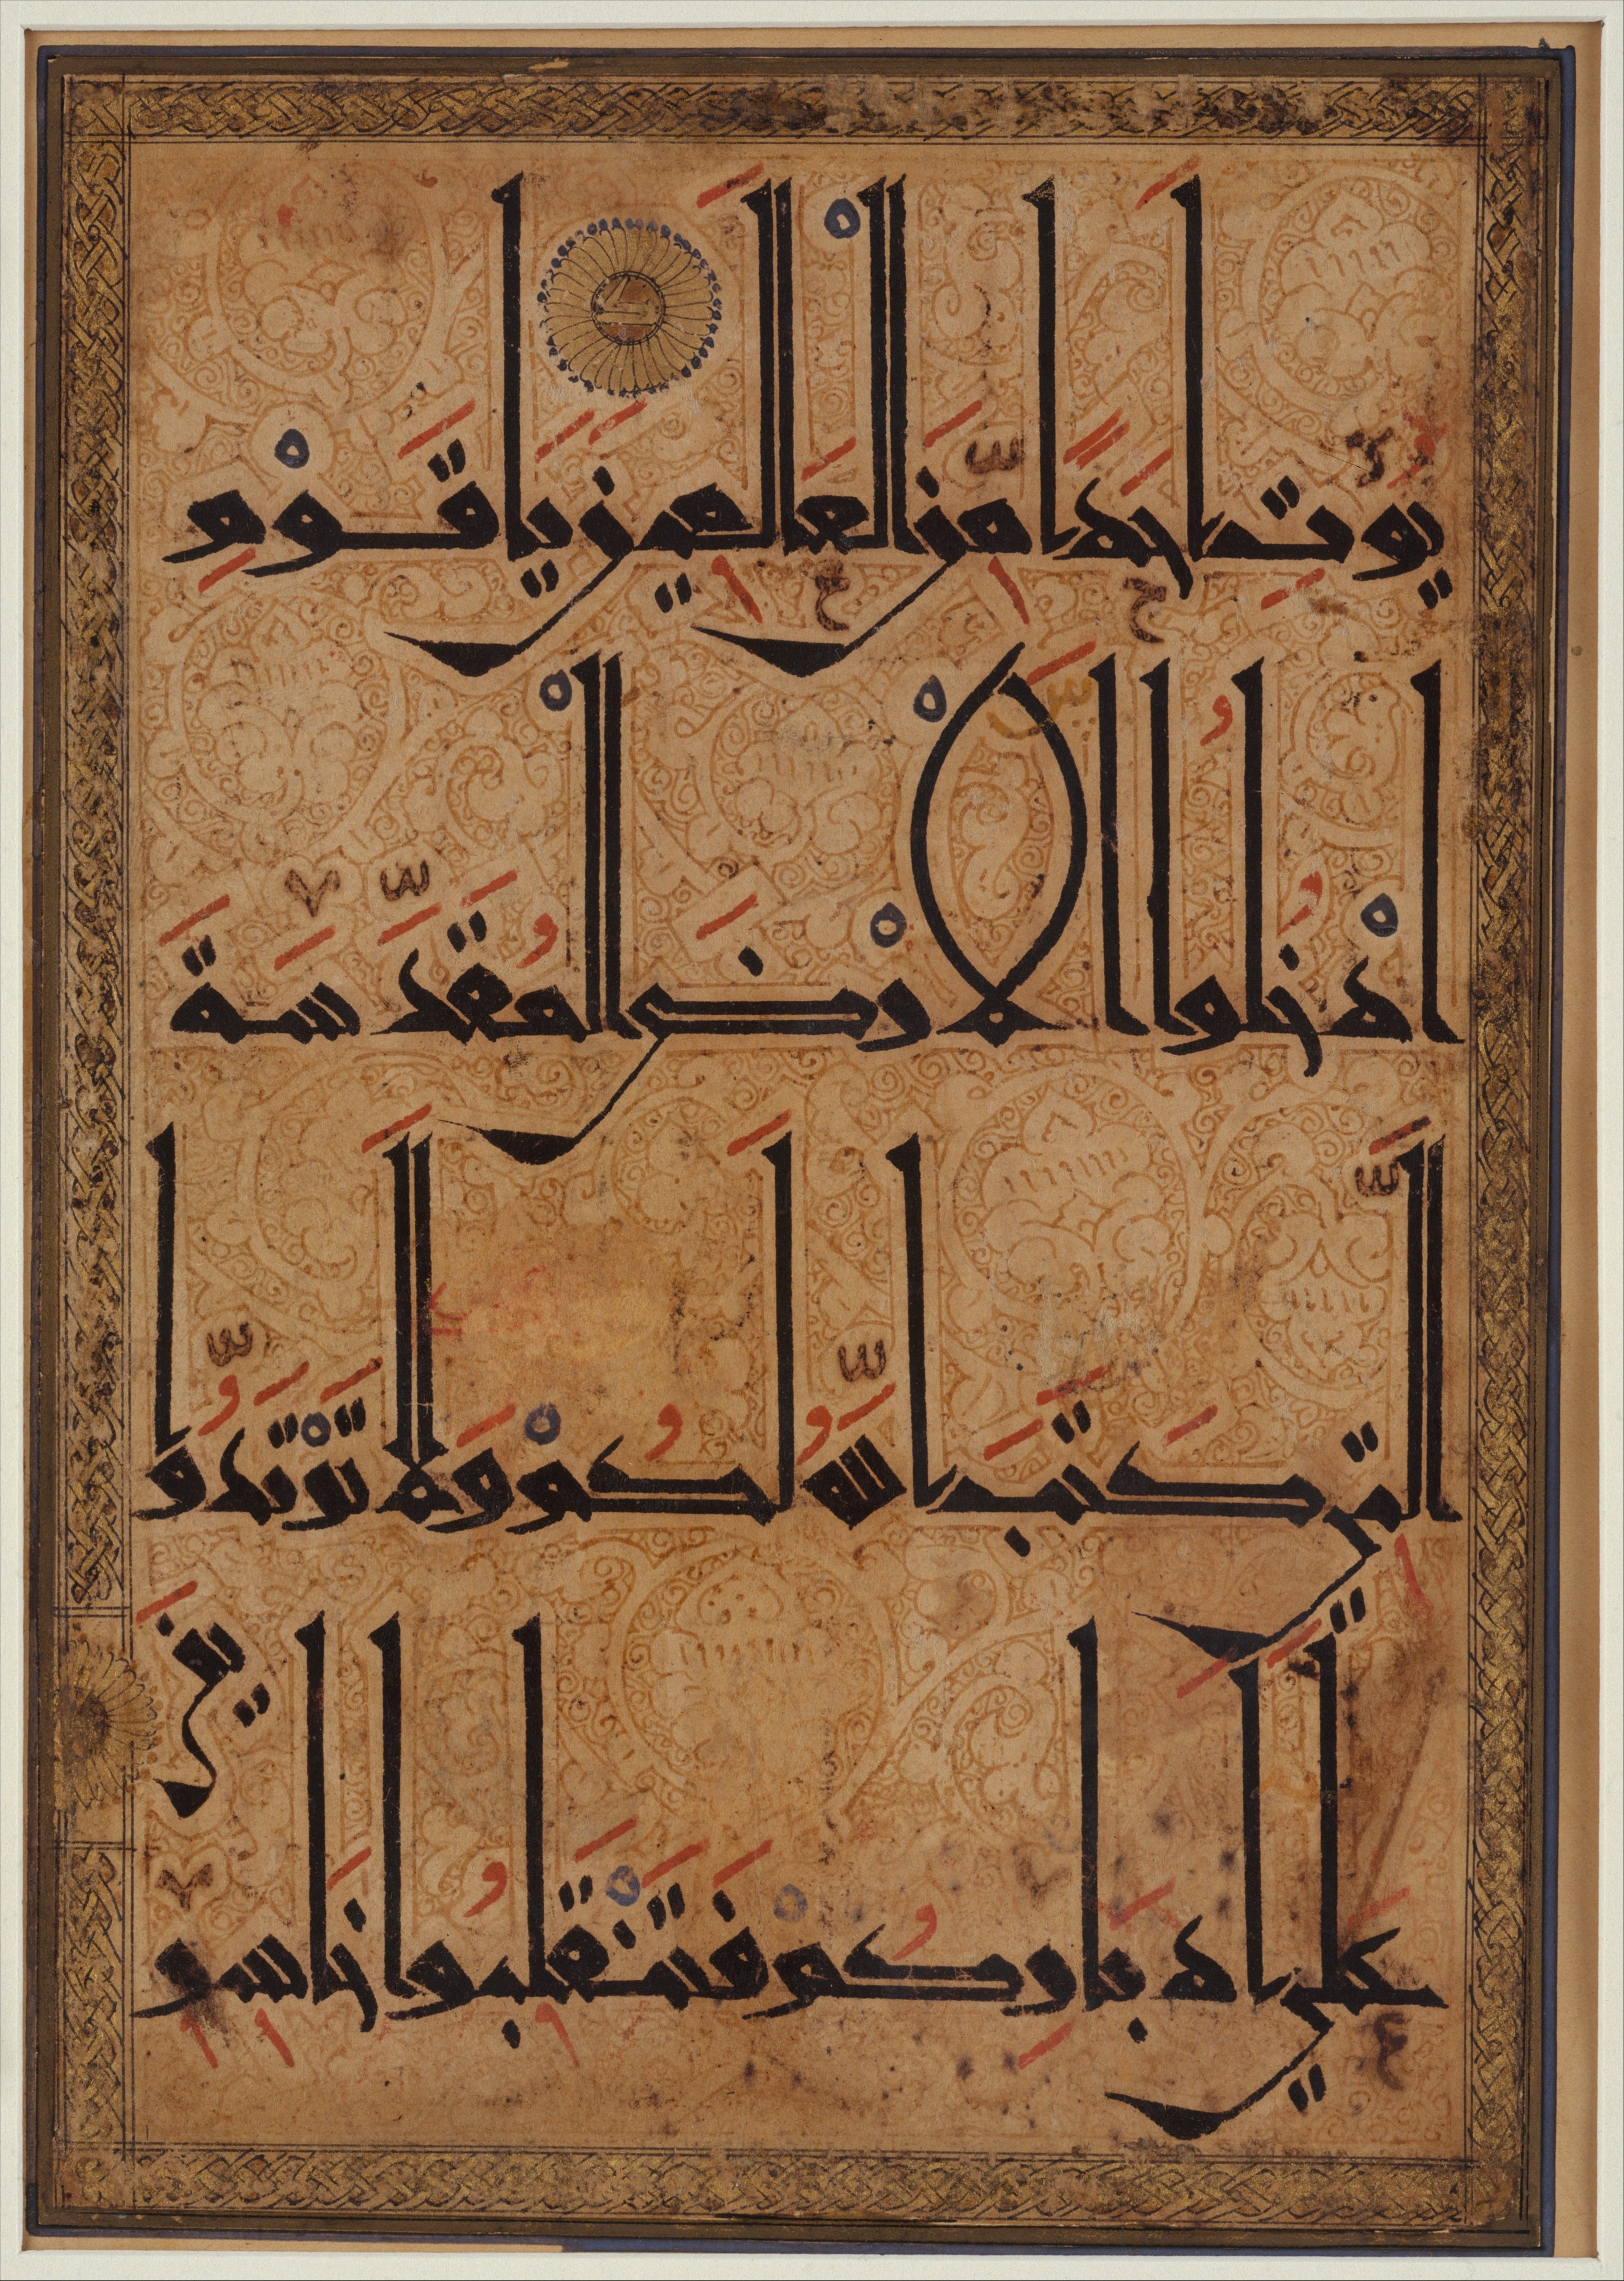 يُؤْتِ أَحَدًا مِّنَ الْعَلَمِينَ يَا قَوْمِ
ادْخُلُوا الْأَرْضَ الْمُقَدَّسَةَ
الَّتِي كَتَبَ اللَّهُ لَكُمْ وَلَا تَرْتَدُّوا
عَلَى أَدْبَارِكُمْ فَتَنْقَلِبُوا خَاسِرِينَ